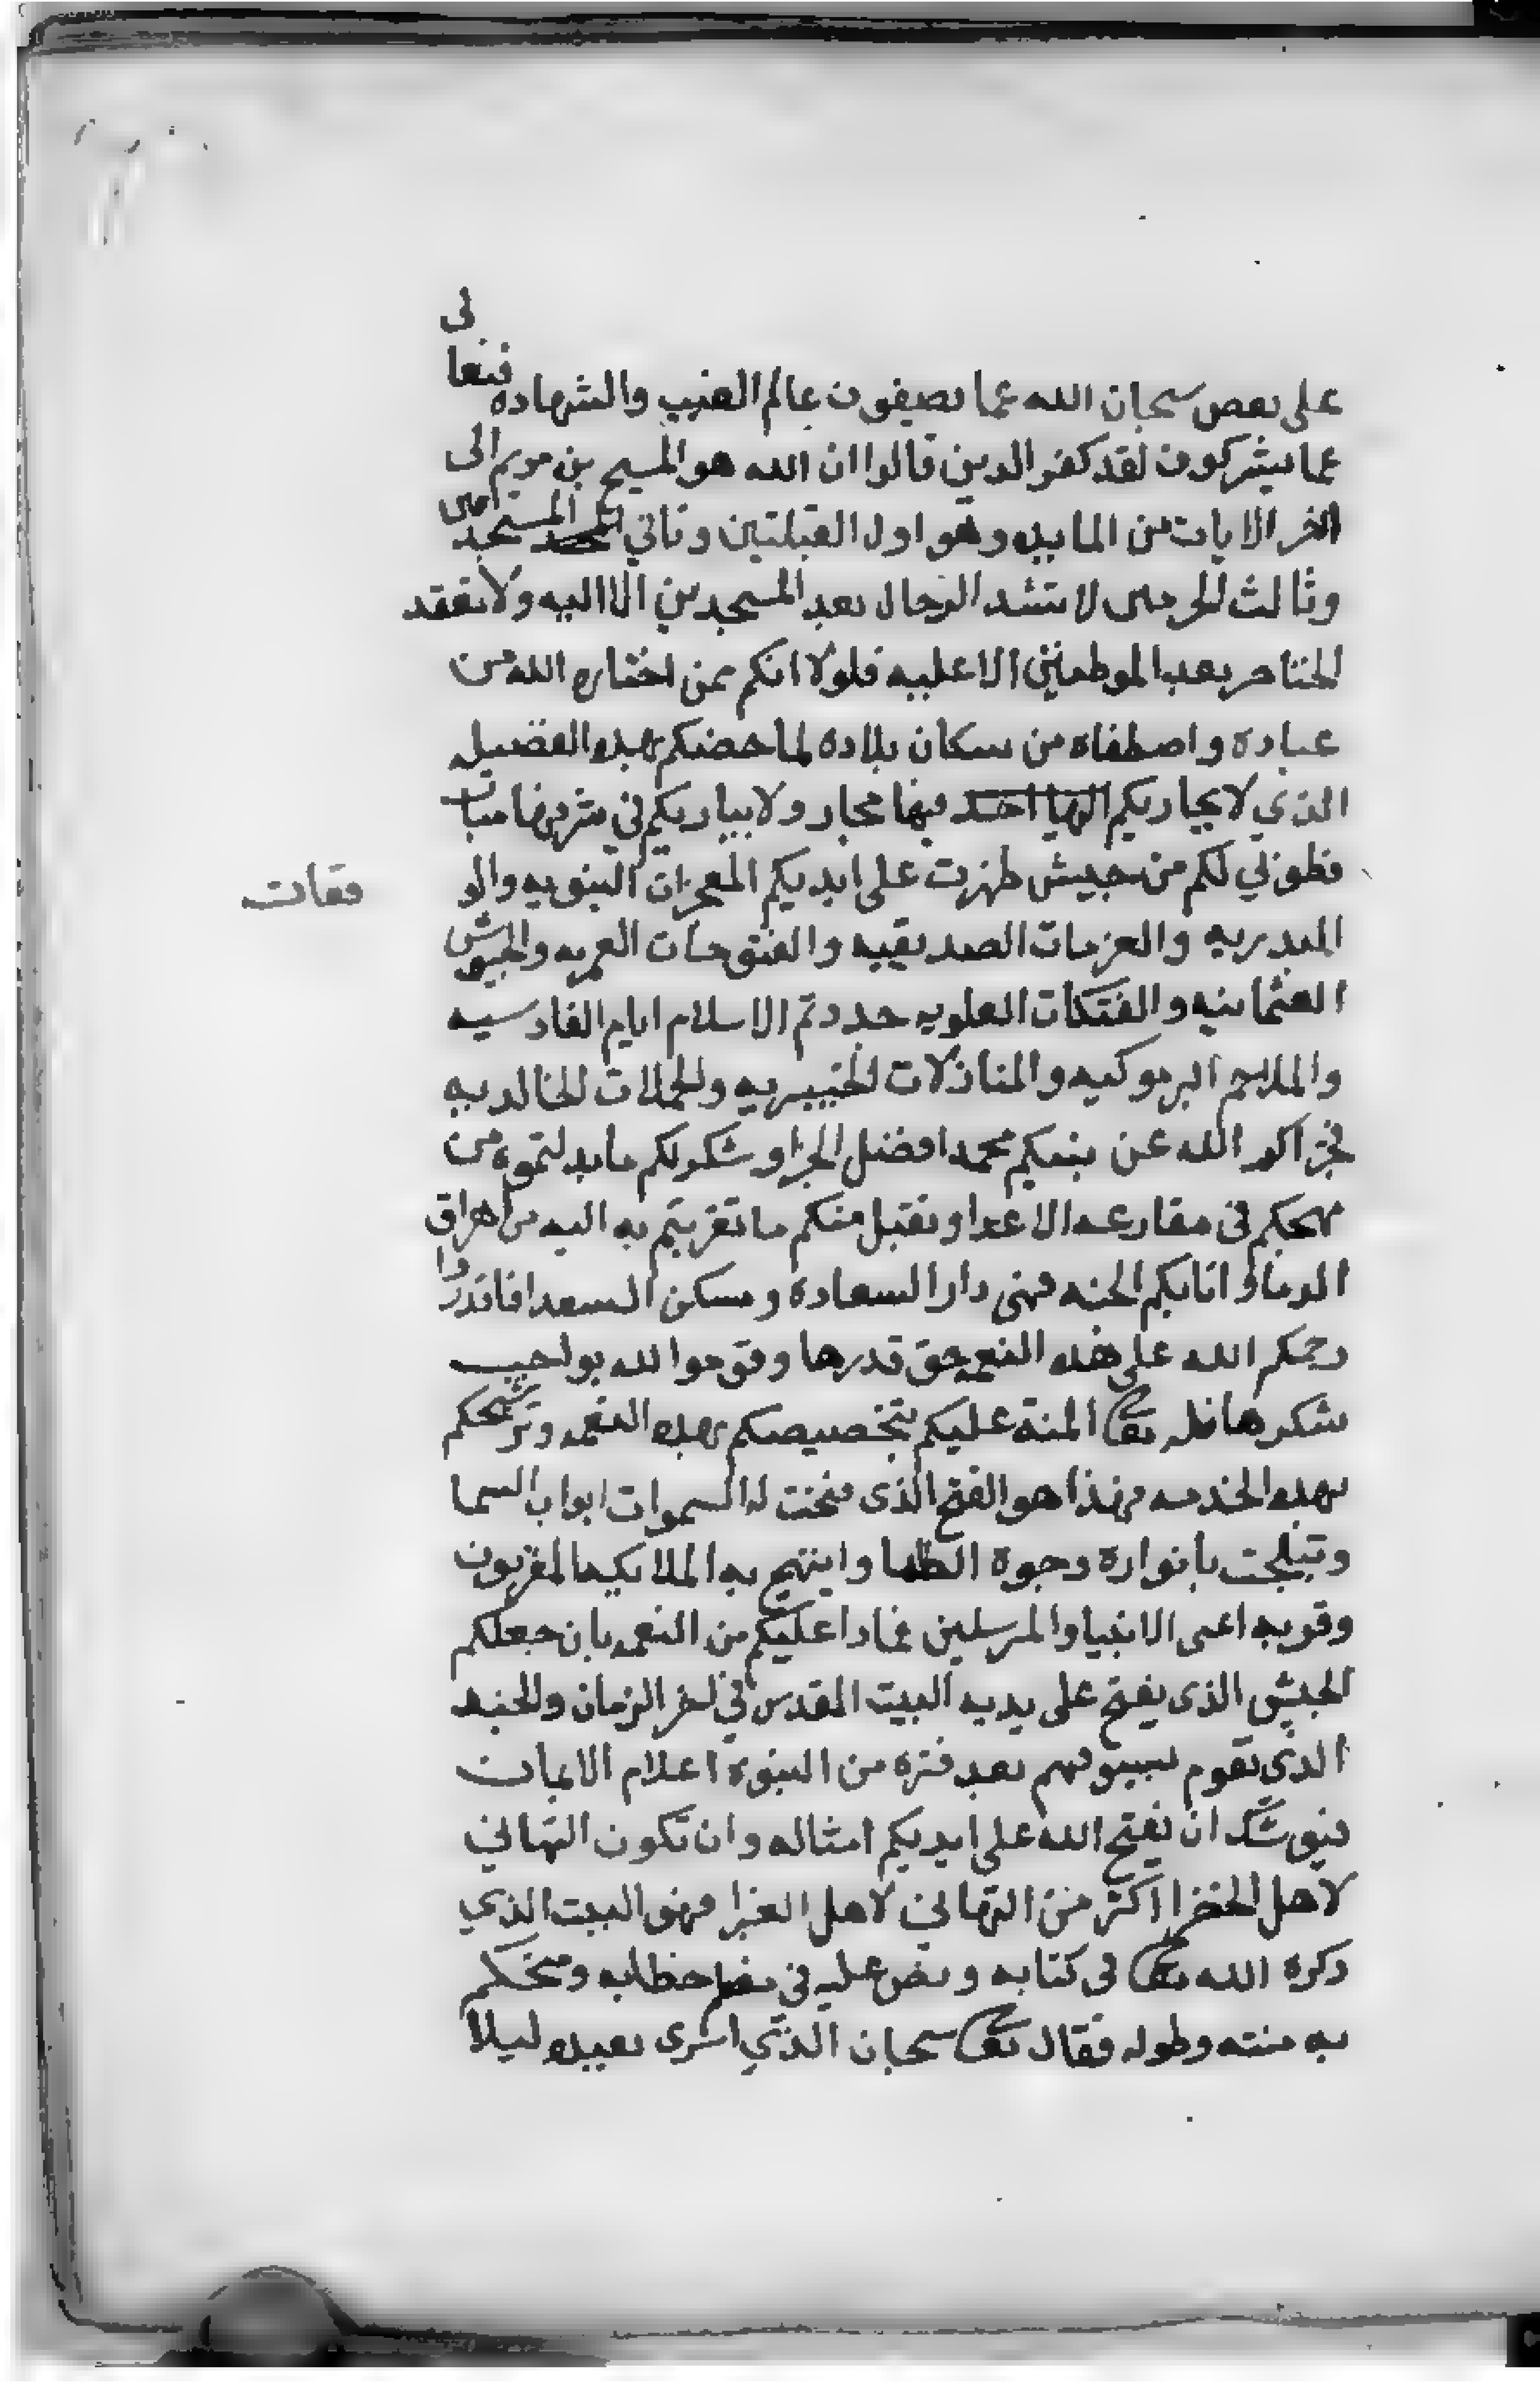 على بعض سبحان الله عما يصفون عالم الغيب والشهاده فتعالى
عما يشركون لقد كفر الدين قالوا ان الله هو المسيح بن مريم الى
اخر الايات من المايده وهو اول القبلتين وثاني المسجدين
وثالث الحرمين لا تشد الرحال بعد المسجدين الا اليه ولا تعقد
الخناصر بعد الموطنين الا عليه فلولا انكم ممن اختاره الله من
عباده واصطفاه من سكان بلاده لما خصكم بهده الفضيله
الذي لا يجاريكم فيها مجار ولا يباريكم في شرفها مبار
فطوبي لكم من جيش ظهرت على ايديكم المعجزات النبويه والو
قعات
البدريه والعزمات الصديقيه والفتوحات العمريه والجيوش
العثمانيه والفتكات العلويه جددتم الاسلام ايام القادسيه
والملاحم اليرموكيه والمنازلات الخيبريه والحملات الخالديه
فجزاكم الله عن نبيكم محمد افضل الجزا وشكر لكم ما بدلتموه من
مهجكم في مقارعه الاعدا وتقبل منكم ما تقربتم به اليه من اهراق
الدما واثابكم الجنه فهى دار السعادة ومسكن السعدا فاقدروا
رحمكم الله على هذه النعمه حق قدرها وقوموا لله بواجب
شكرها فله تعا المنة عليكم بتخصيصكم بهده النعمه وترشيحكم
بهده الخدمه فهذا هو الفتح الذى فتحت له السموات ابواب السما
وتبلجت بانواره وجوه الظلما وابتهج به الملايكه المقربون
وقر به اعين الانبيا والمرسلين فمادا عليكم من النعمه بان جعلكم
الجيش الذى يفتح على يديه البيت المقدس في اخر الزمان والجند
الذي تقوم بسيوفهم بعد فتره من النبوه اعلام الايمان
فيوشك ان يفتح الله على ايديكم امثاله وان تكون التهاني
لاهل الخضرا اكثر من التهاني لاهل الغبرا فهو البيت الذي
دكره الله تعا فى كتابه ونص عليه في خطابه ومنحكم
به منته وطوله فقال تعا سبحان الذي اسرى بعبده ليلا